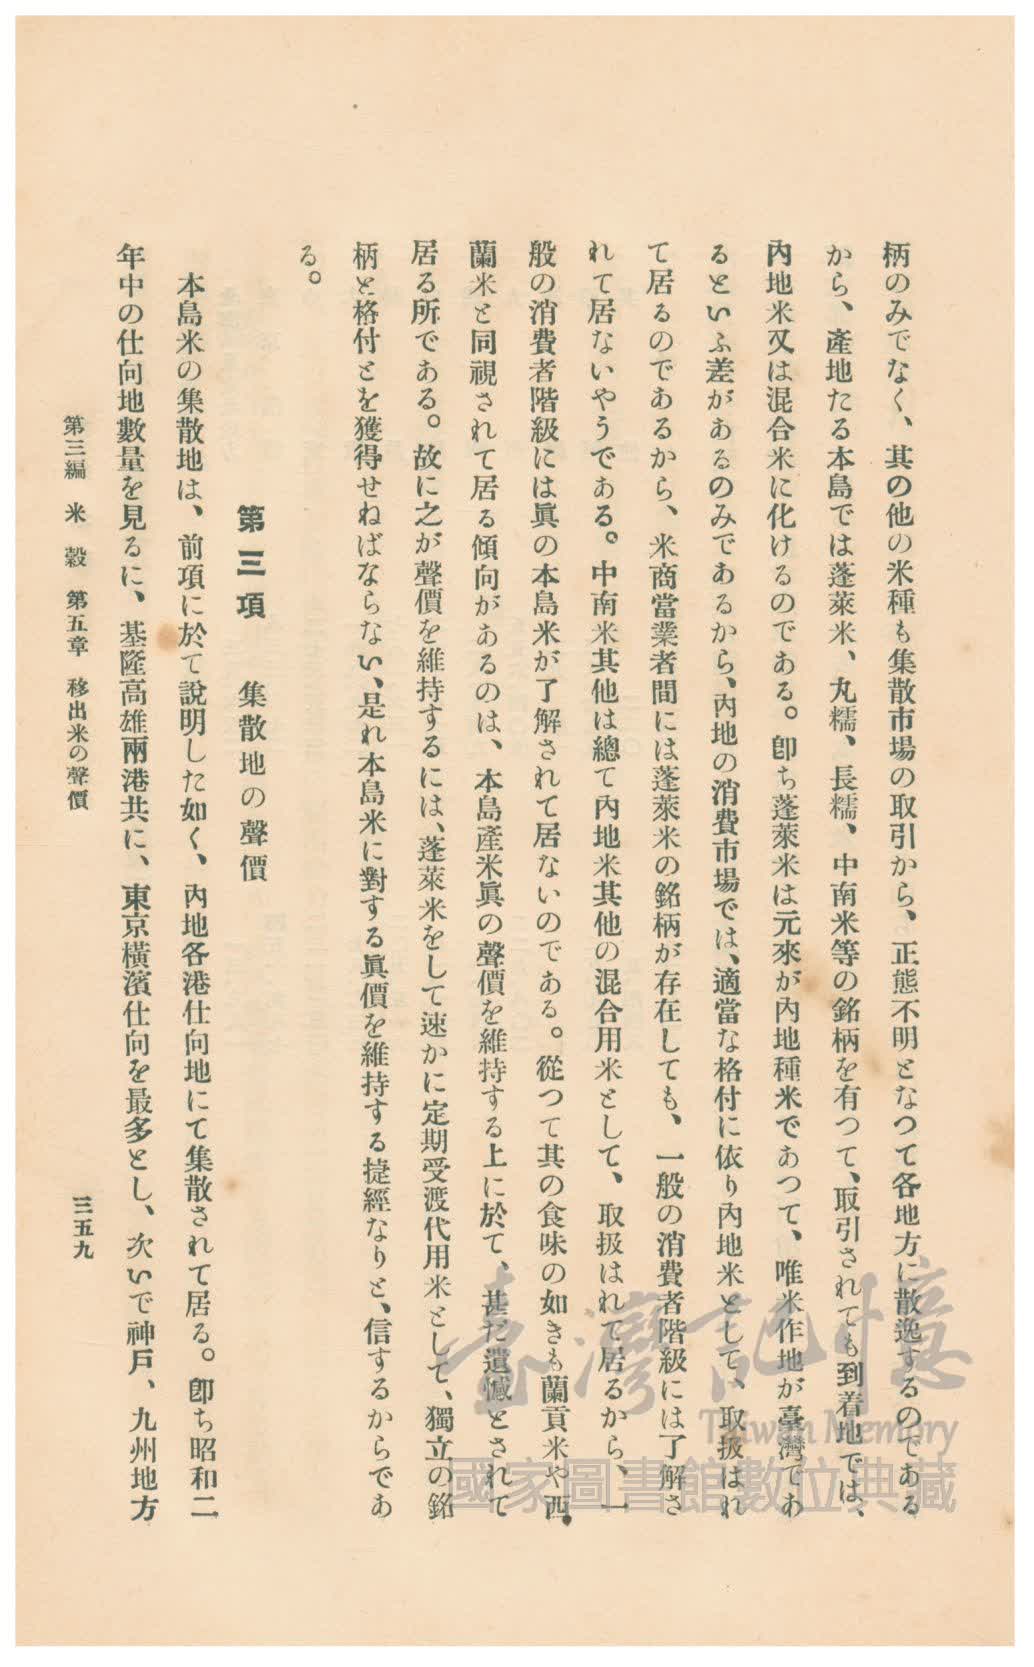 柄のみでなく、其の他の米種も集散市場の取引から、正態不明となつて各地方に散逸するのである
から、產地たる本島では蓬萊米、丸糯、長糯、中南米等の銘柄を有つて、取引されても到着地では、
內地米又は混合米に化けるのである。卽ち蓬萊米は元來が內地種米であつて、唯米作地が臺灣であ
るといふ差があるのみであるから、內地の消費市場では、適當な格付に依り內地米として、取扱はれ
て居るのであるから、米商當業者間には蓬萊米の銘柄が存在しても、一般の消費者階級には了解さ
れて居ないやうである。中南米其他は總て內地米其他の混合用米として、取扱はれて居るから、一
般の消費者階級には眞の本島米が了解されて居ないのである。從つて其の食味の如きも蘭貢米や西
蘭米と同視されて居る傾向があるのは、本島產米眞の聲價を維持する上に於て、甚だ遺憾とされて
居る所である。故に之が聲價を維持するには、蓬萊米をして速かに定期受渡代用米として、獨立の銘
柄と格付とを獲得せねばならない、是れ本島米に對する眞價を維持する捷經なりと、信するからであ
る。
第三項 集散地の聲價
本島米の集散地は、前項に於て說明した如く、內地各港仕向地にて集散されて居る。卽ち昭和二
年中の仕向地數量を見るに、基隆高雄兩港共に、東京橫濱仕向を最多とし、次いで神戶、九州地方
第三編 米穀 第五章 移出米の聲價
三五九
臺灣記憶
Taiwan Memory
國家圖書館數位典藏